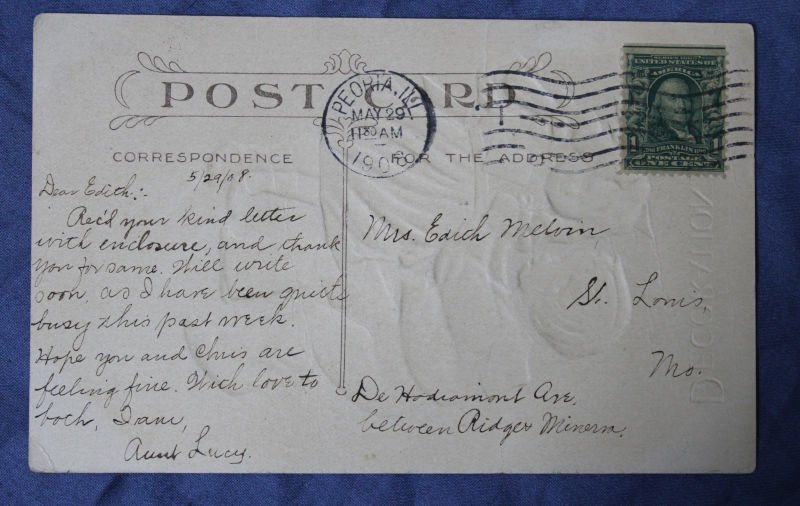 POST CARD
PEORIA, ILL.
MAY 29
1130 AM
1908
SERIES 1902
UNITED STATES OF
AMERICA
FRANKLIN
POSTAGE
1 ONE CENT 1
CORRESPONDENCE
FOR THE ADDRESS
5/29/08.
Dear Edith:-
Rec'd your kind letter
with enclosure, and thank
you for same. Will write
soon, as I have been quite
busy this past week.
Hope you and Chris are
feeling fine. With love to
both, I am,
Aunt Lucy.
Mrs. Edith Melvin,
St. Louis,
Mo.
De Hodiamont Ave.
between Ridge & Minerva.
DECORATION